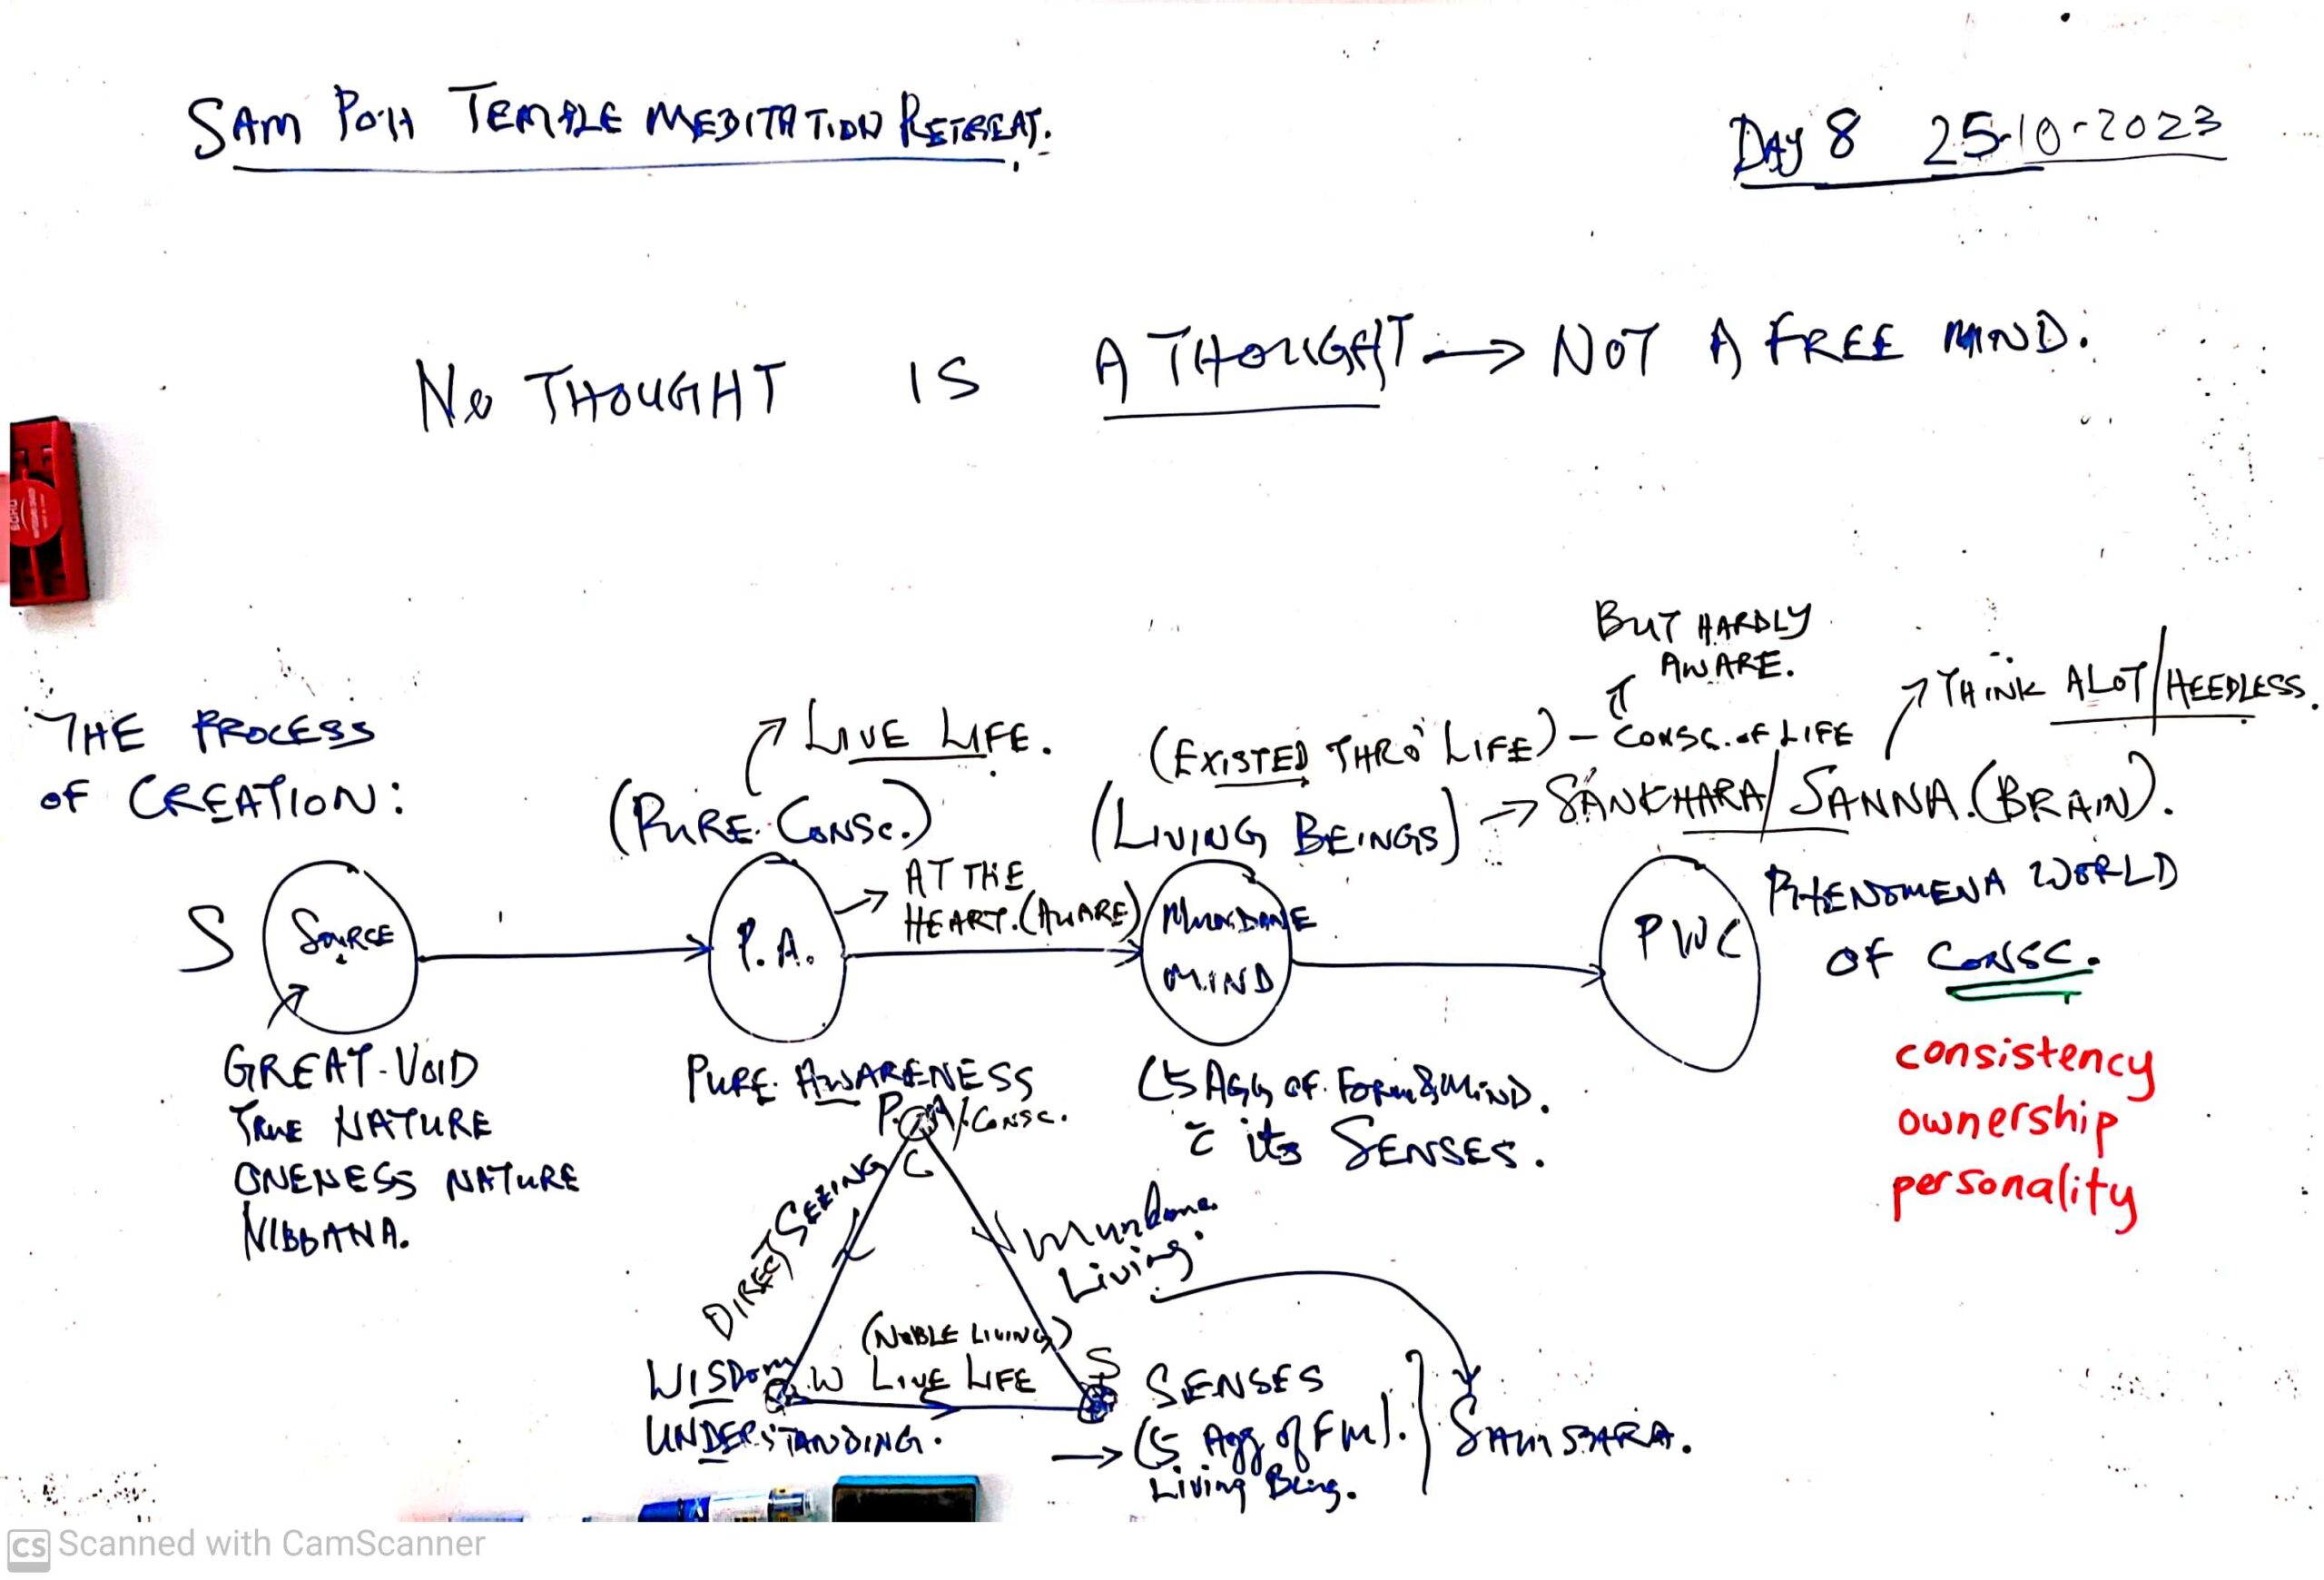 SAM POH TEMPLE MEDITATION RETREAT.
DAY 8 25-10-2023
NO THOUGHT IS A THOUGHT → NOT A FREE MIND.
THE PROCESS
OF CREATION:
LIVE LIFE.
(PURE CONSC.)
BUT HARDLY
AWARE.
(EXISTED THRO' LIFE) – CONSC. OF LIFE
THINK ALOT/HEEDLESS.
(LIVING BEINGS) → SANKHARA/SANNA.(BRAIN).
S
SOURCE
P.A.
→ AT THE
HEART.(AWARE)
MUNDANE
MIND
PWC
PHENOMENA WORLD
OF CONSC.
GREAT-VOID
TRUE NATURE
ONENESS NATURE
NIBBANA.
PURE AWARENESS
P.A/CONSC.
C
(5 AGG OF FORM & MIND.
c̄ its SENSES.
consistency
ownership
personality
DIRECT SEEING
Mundane
Living.
(NOBLE LIVING)
LIVE LIFE
WISDOM W
UNDERSTANDING.
S
SENSES
→ (5 Agg of FM).
Living Being.
SAMSARA.
CS Scanned with CamScanner